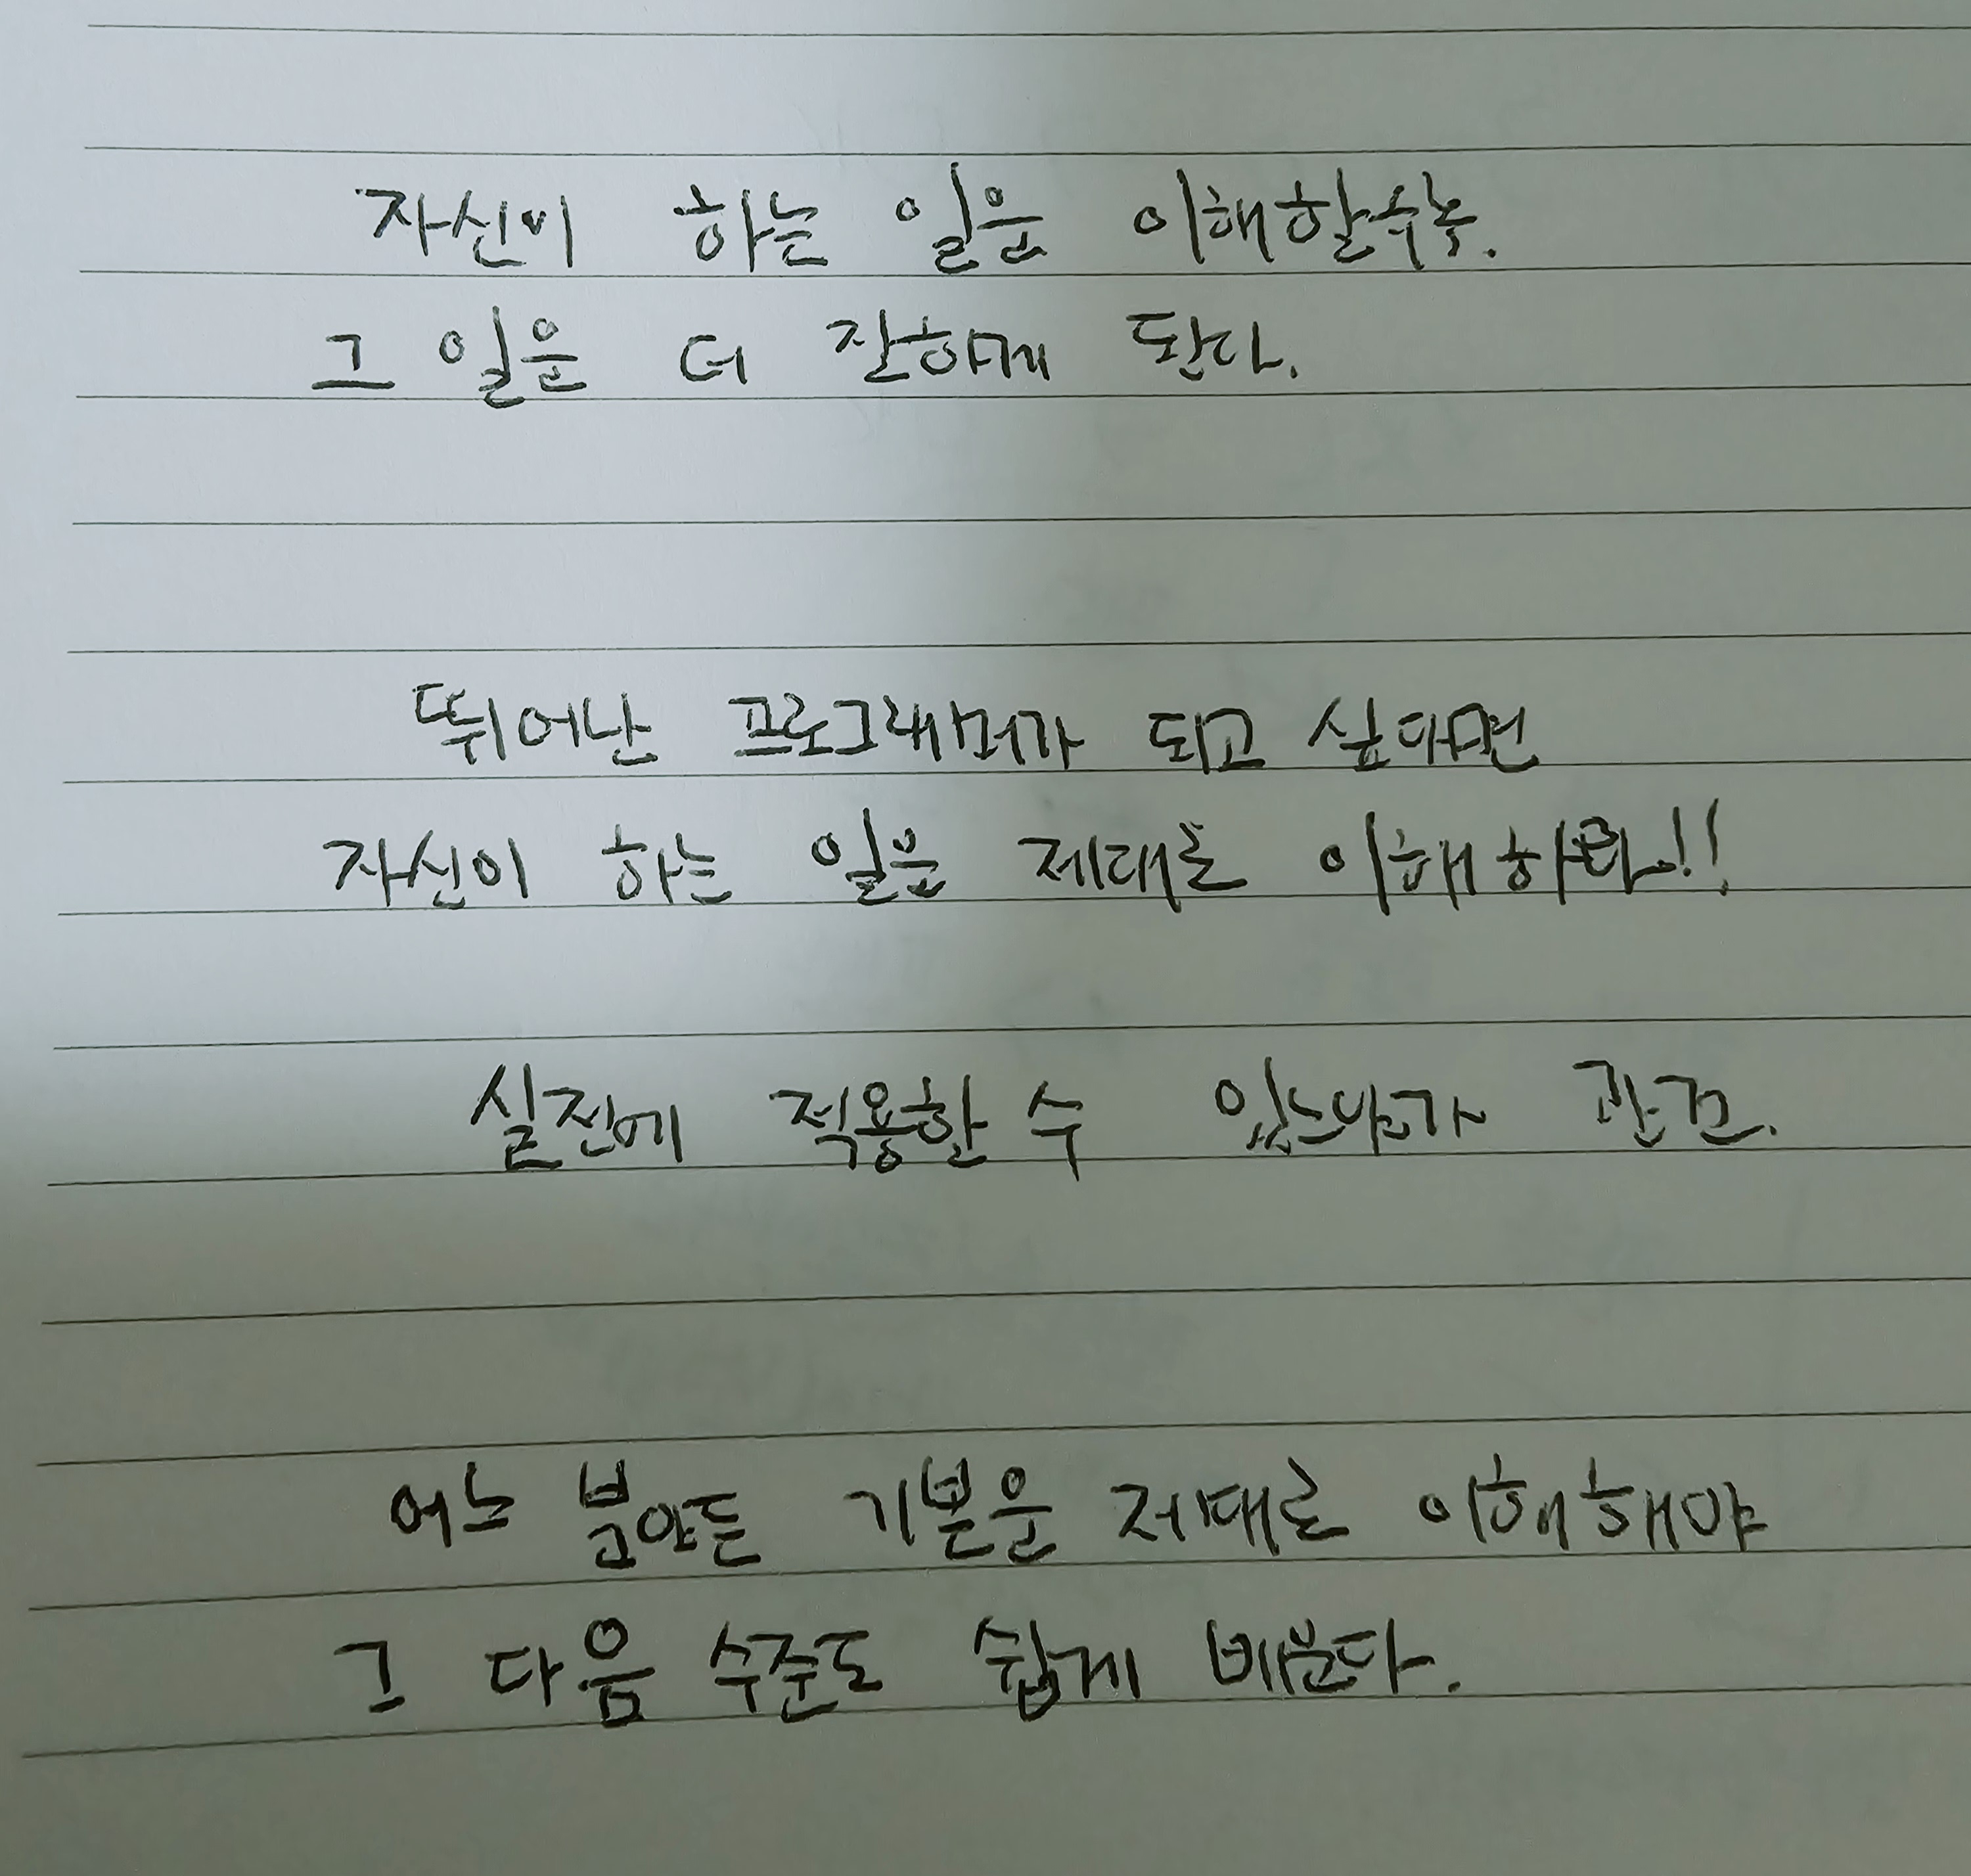 자신이 하는 일을 이해할수록.
그 일을 더 잘하게 된다.
뛰어난 프로그래머가 되고 싶다면
자신이 하는 일을 제대로 이해하라!!
실전에 적용할 수 있느냐가 관건.
어느 분야든 기본을 제대로 이해해야
그 다음 수준도 쉽게 배운다.